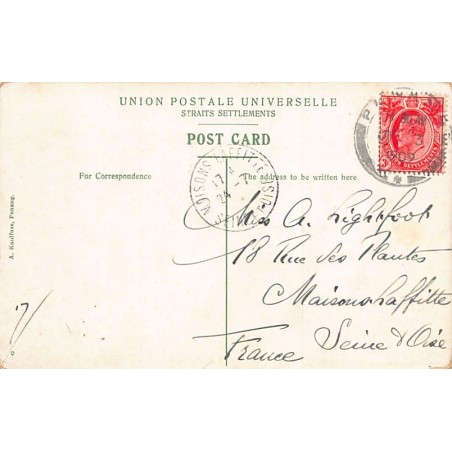 UNION POSTALE UNIVERSELLE
STRAITS SETTLEMENTS
POST CARD
For Correspondence
The address to be written here
A. Kaulfuss, Penang.
MAISONS-LAFFITTE
17
24
Miss A. Lightfoot
18 Rue des Plantes
Maisons Laffitte
Seine & Oise
France
SETTLEMENTS
17/